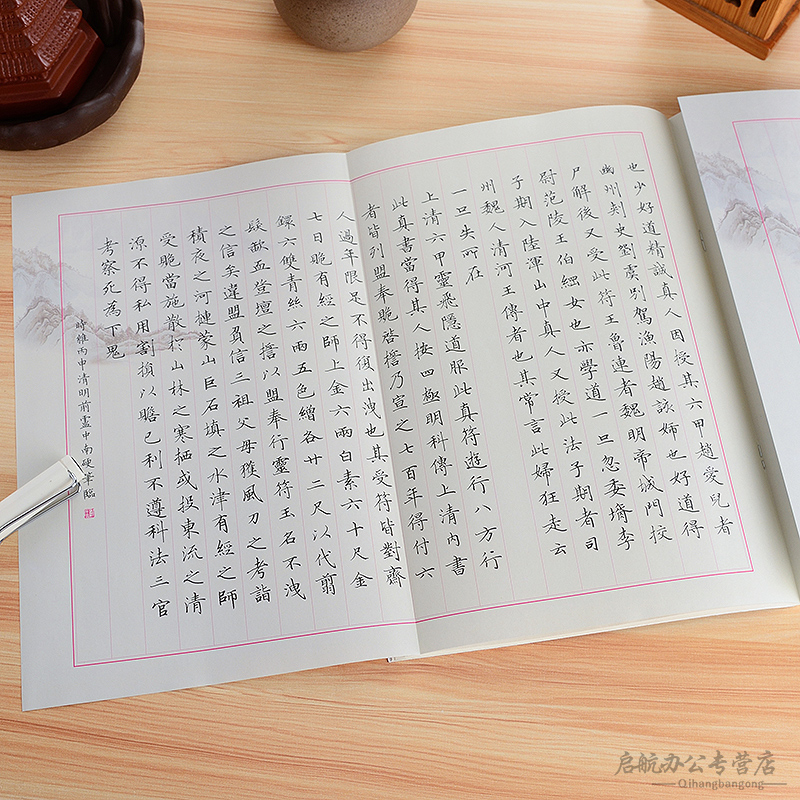 也少好道精誠真人因授其六甲趙愛兒者
幽州刾史劉虞別駕漁陽趙該姉也好道得
尸解後又受此符王魯連者魏明帝城門挍
尉范陵王伯綱女也亦學道一旦忽委壻李
子期入陸渾山中真人又授此法子期者司
州魏人清河王傳者也其常言此婦狂走云
一旦失所在
上清六甲靈飛隱道服此真符遊行八方行
此真書當得其人按四極明科傳上清內書
者皆列盟奉跪啓擔乃宣之七百年得付六
人過年限足不得復出洩也其受符皆對齋
七日跪有經之師上金六兩白素六十尺金
鐶六雙青絲六兩五色繒各廿二尺以代翦
髮歃血登壇之擔以盟奉行靈符玉名不洩
之信矣違盟負信三祖父母獲風刀之考詣
積夜之河摙蒙山巨石填之水津有經之師
受跪當施散於山林之寒栖或投東流之清
源不得私用割損以贍己利不遵科法三官
考察死為下鬼
時維丙申清明前盧中南硬筆臨
启航办公专营店
Qihangbangong